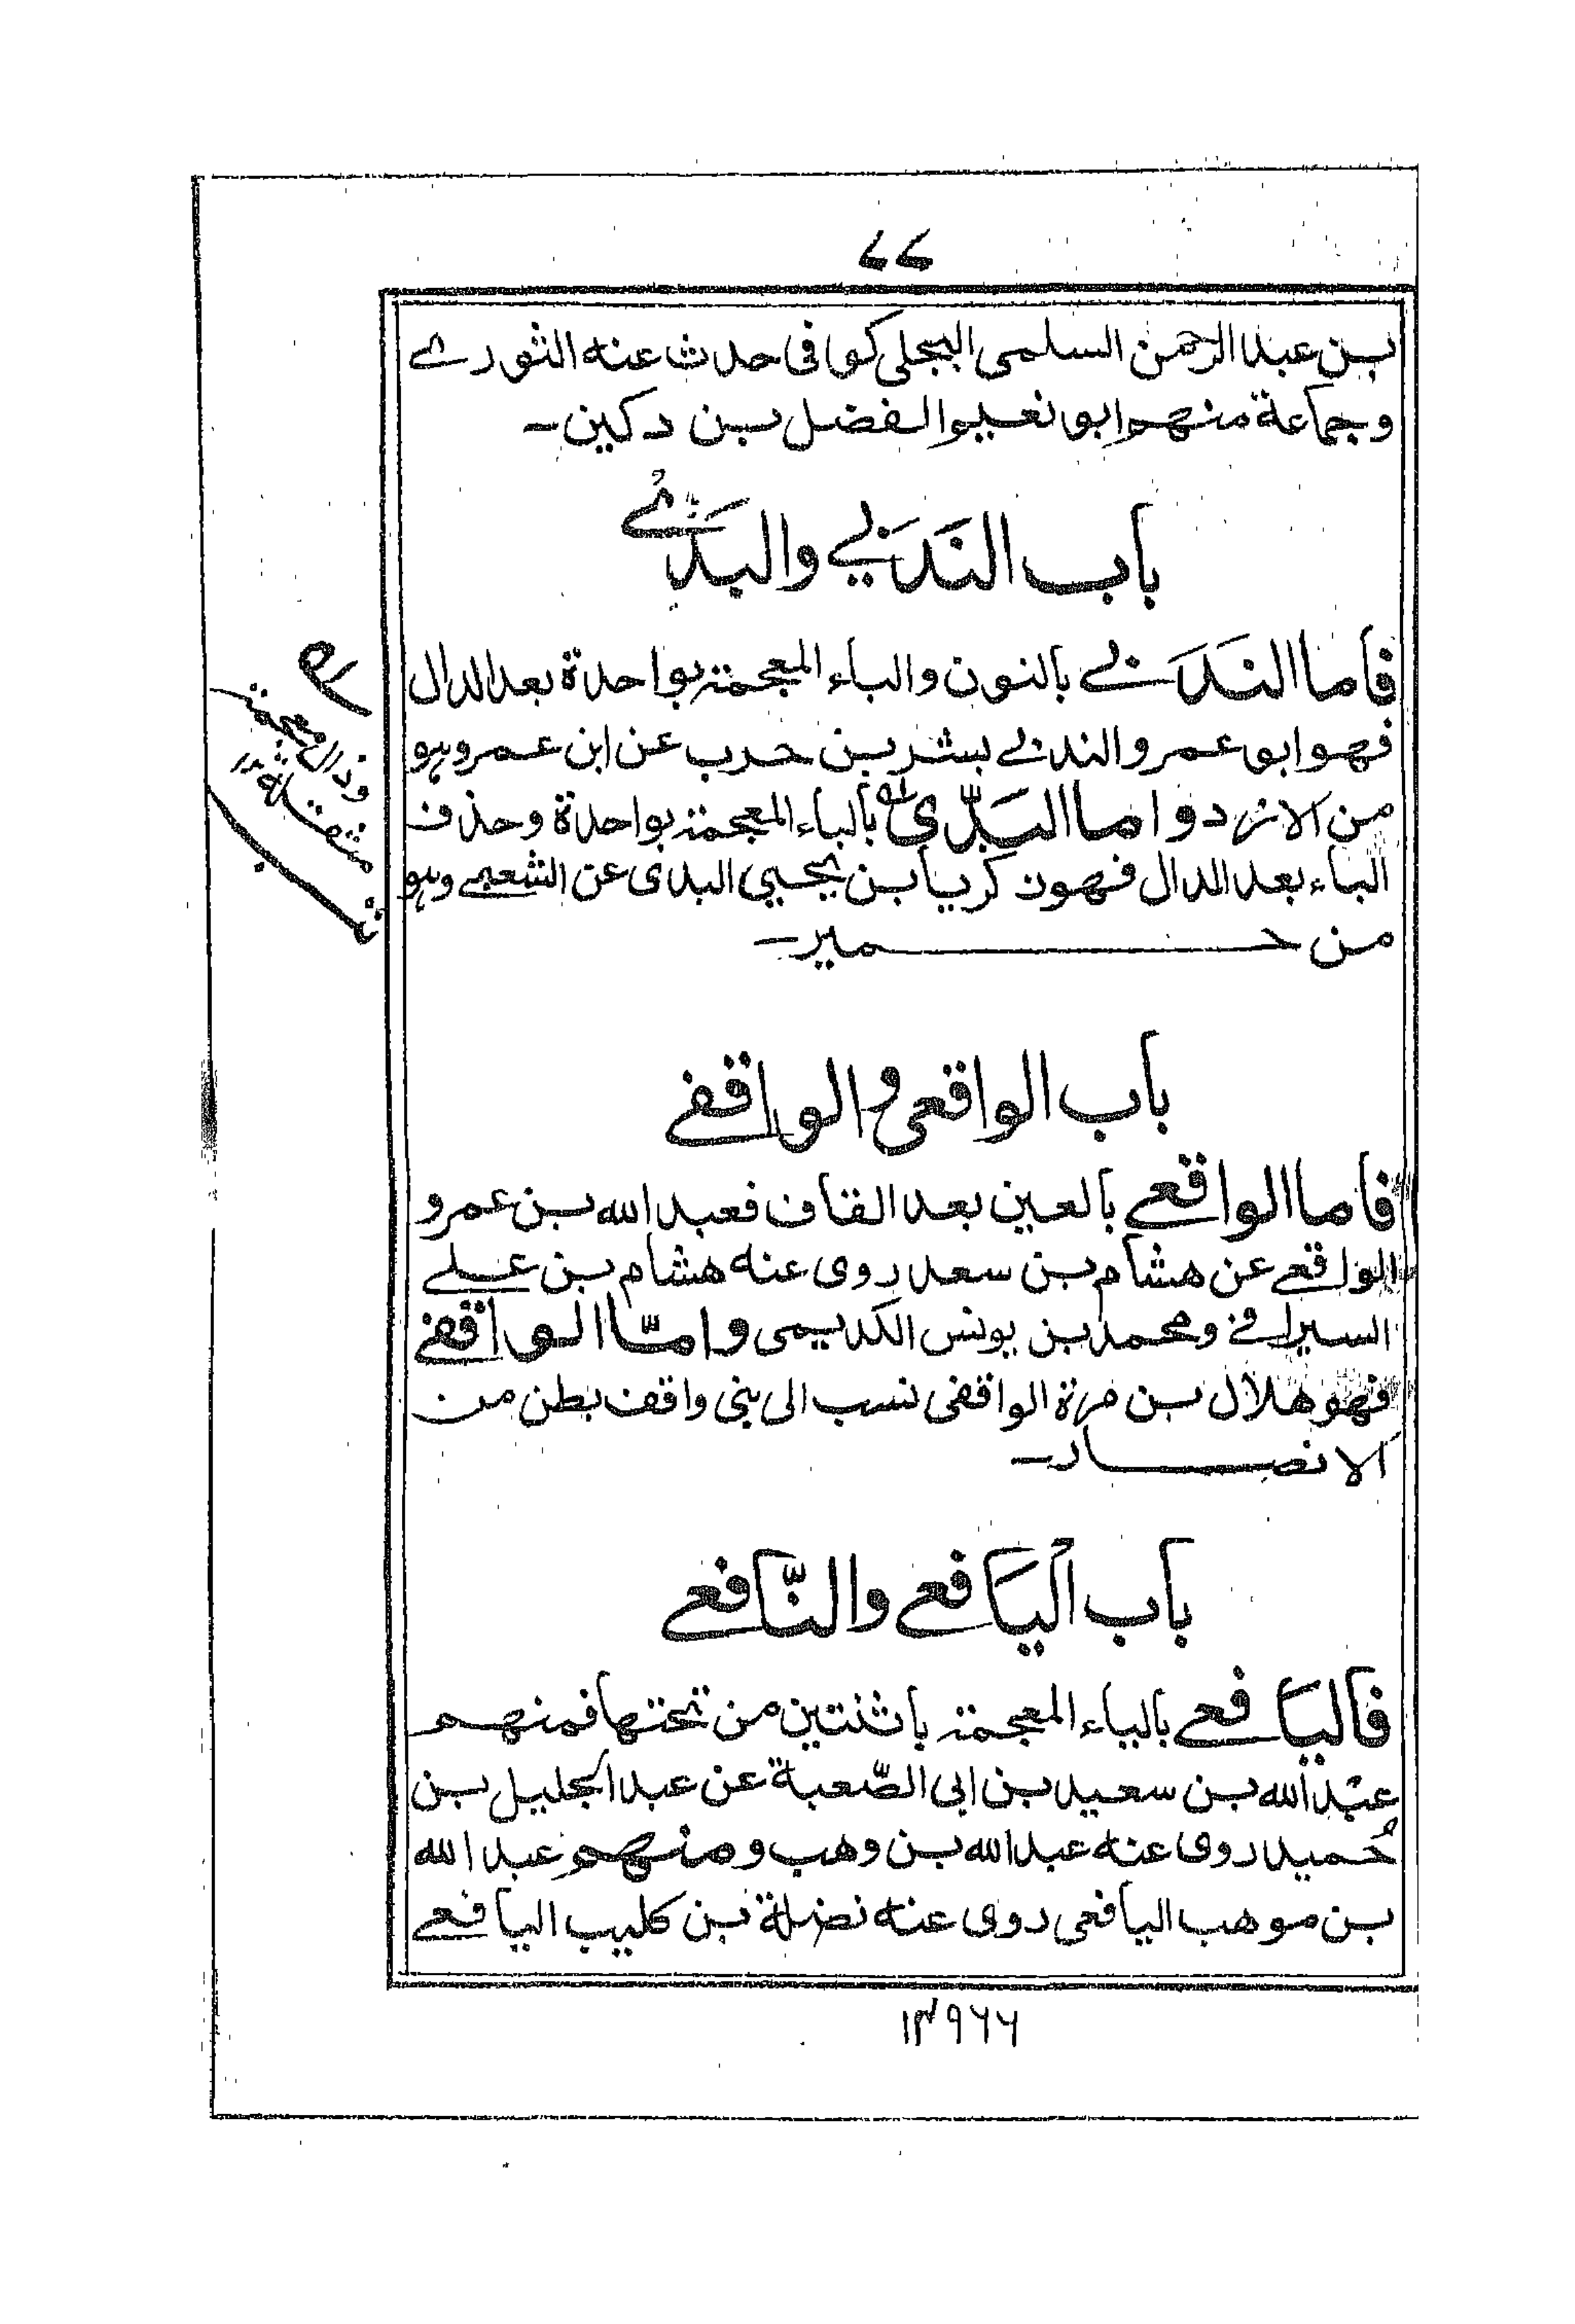 ٧٧
بن عبد الرحمن السلمى البجلى كوفى حدث عنه الثورے
وجماعة منهم ابو نعيم الفضل بن دكين۔
باب النَدَبے والبَدّے
فاما النَدَبے بالنون والباء المعجمة بواحدة بعد الدال
فهو ابو عمرو الندبے بشر بن حرب عن ابن عمر وهو
من الازد واما البَدّى بالباء المعجمة بواحدة وحذف
الباء بعد الدال فهو زكريا بن يحيى البدى عن الشعبے وهو
من حمير۔
وذال معجمة
مثقلة ١٢
باب الواقعى والواقفے
فاما الواقعے بالعين بعد القاف فعبد الله بن عمرو
الواقعے عن هشام بن سعد روى عنه هشام بن علے
السيرافے ومحمد بن يونس الكديمى وامّا الواقفے
فهو هلال بن مرة الواقفى نسب الى بنى واقف بطن من
الانصار۔
باب اليَافعے والنّافعے
فاليَافعے بالياء المعجمة باثنتين من تحتها فمنهم
عبد الله بن سعيد بن ابى الصّعبة عن عبد الجليل بن
حُميد روى عنه عبد الله بن وهب ومنهم عبد الله
بن موهب اليافعى روى عنه نضلة بن كليب اليافعے
١٣٩٦٦